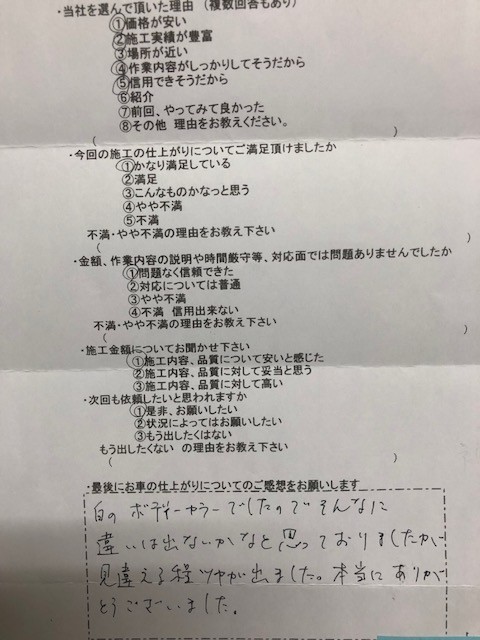 ・当社を選んで頂いた理由 (複数回答もあり)
①価格が安い
②施工実績が豊富
③場所が近い
④作業内容がしっかりしてそうだから
⑤信用できそうだから
⑥紹介
⑦前回、やってみて良かった
⑧その他 理由をお教えください。
( )
・今回の施工の仕上がりについてご満足頂けましたか
①かなり満足している
②満足
③こんなものかなっと思う
④やや不満
⑤不満
不満・やや不満の理由をお教え下さい
( )
・金額、作業内容の説明や時間厳守等、対応面では問題ありませんでしたか
①問題なく信頼できた
②対応については普通
③やや不満
④不満 信用出来ない
不満・やや不満の理由をお教え下さい
( )
・施工金額についてお聞かせ下さい
①施工内容、品質について安いと感じた
②施工内容、品質に対して妥当と思う
③施工内容、品質に対して高い
・次回も依頼したいと思われますか
①是非、お願いしたい
②状況によってはお願いしたい
③もう出したくはない
もう出したくない の理由をお教え下さい
( )
・最後にお車の仕上がりについてのご感想をお願いします
白の ボディーカラーでしたのでそんなに
違いは出ないかなと思っておりましたが
見違える程ツヤが出ました。本当にありが
とうございました。